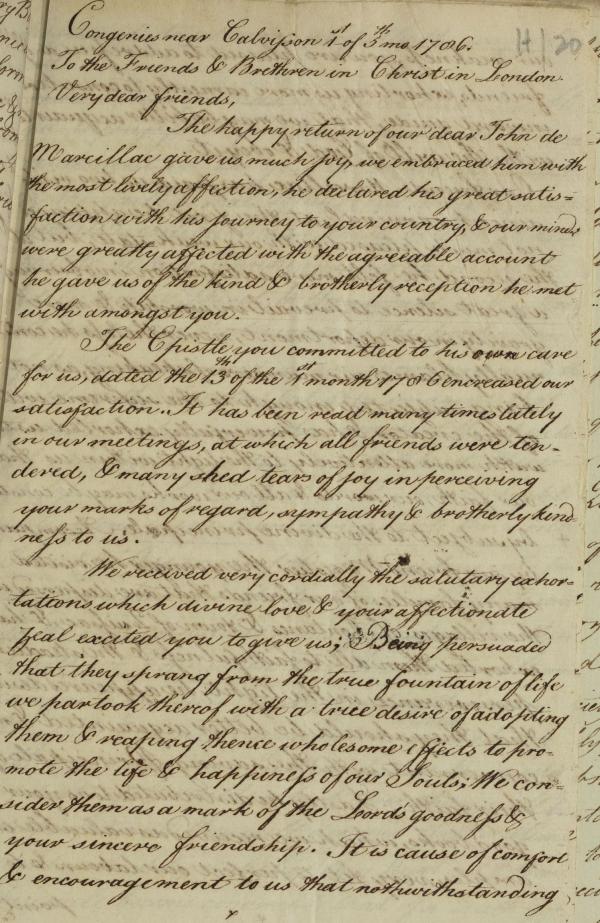 Congenies near Calvisson 1st of 5th mo 1786.
H/20
To the Friends & Brethren in Christ in London.
Very dear friends,
The happy return of our dear John de
Marcillac gave us much joy, we embraced him with
the most lively affection, he declared his great satis=
faction with his journey to your country, & our minds
were greatly affected with the agreeable account
he gave us of the kind & brotherly reception he met
with amongst you.
The Epistle you committed to his own care
for us, dated the 13th of the 1st month 1786 encreased our
satisfaction. It has been read many times lately
in our meetings, at which all friends were ten-
dered, & many shed tears of joy in perceiving
your marks of regard, sympathy & brotherly kind
ness to us.
We received very cordially the salutary exhor-
tations which divine love & your affectionate
zeal excited you to give us; Being persuaded
that they sprang from the true fountain of life
we partook thereof with a true desire of adopting
them & reaping thence wholesome effects to pro-
mote the life & happiness of our Souls; We con-
sider them as a mark of the Lord's goodness &
your sincere friendship. It is cause of comfort
& encouragement to us that nothwithstanding